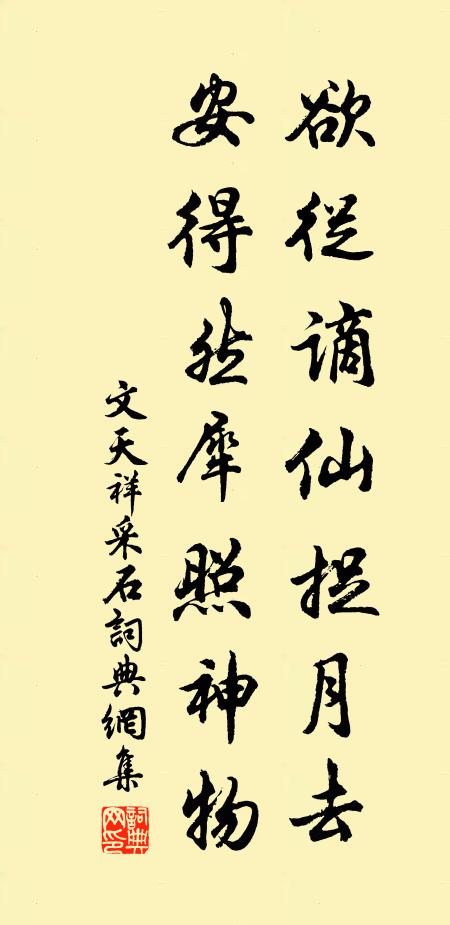 欲從謫仙捉月去
安得然犀照神物
文天祥采石詞典網集
詞典网印